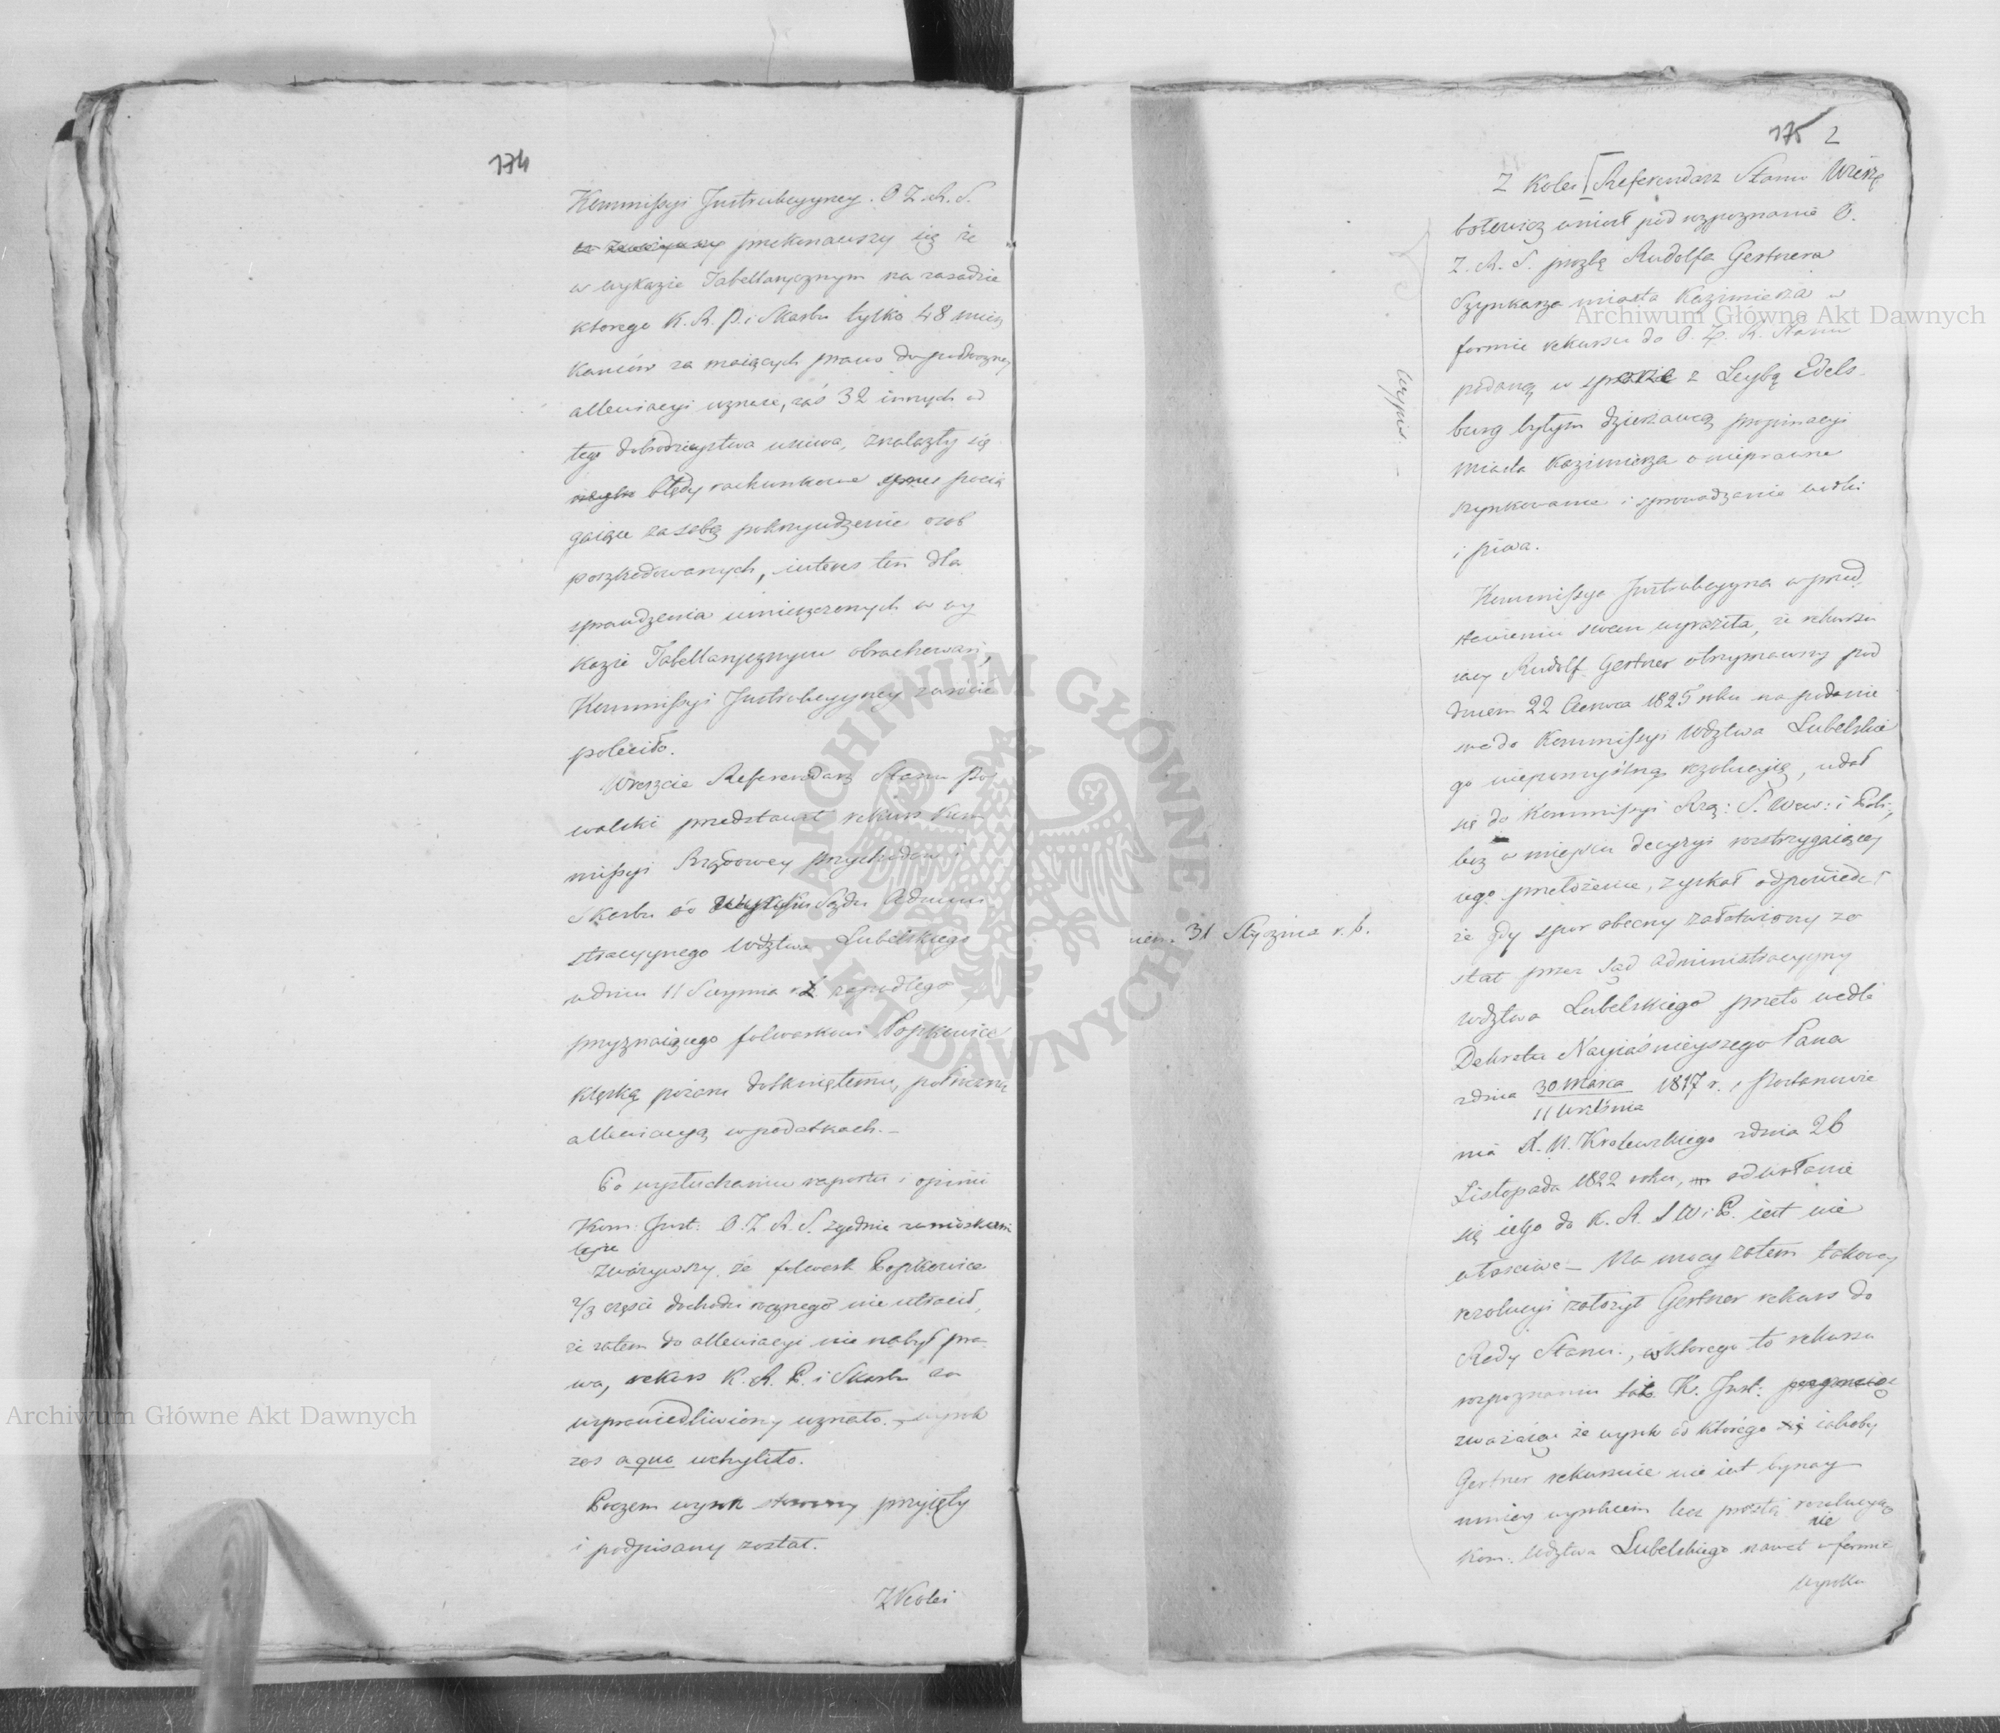 174
Kommissyi Instrukcyyney. O. Z. R. S.
przekonawszy się że
w wykazie Tabellarycznym na zasadzie
ktorego K. R. P. i Skarbu tylko 48 miesz
kańców za maiących prawo do podwozney
allewiacyi uznała, zaś 32 innych od
tego dobrodzieystwa usuwa, znalazły się
błędy rachunkowe pocią
gaiące za sobą pokrzywdzenie osob
poszkodowanych, interes ten dla
sprawdzenia umieszczonych w wy
kazie Tabellarycznym obrachowań,
Kommissyi Instrukcyyney zwrócić
poleciło.
Wreszcie Referendarz Stanu Po
walski przedstawił rekurs Kom
missyi Rządowey Przychodow i
Skarbu od Wyroku Sądu Admini
stracyynego Wdztwa Lubelskiego
w dniu 11 Sierpnia r. z. zapadłego
przyznaiącego folwarkowi Popkowice
klęską pożaru dotkniętemu, 
allewiacyą w podatkach.—
Po wysłuchaniu raportu i opinii
Kom: Inst: O. Z. R. S. zgodnie z wnioskiem
teyże
Zważywszy że folwark Popkowice
2/3 części dochodu rocznego nie utracił,
że zatem do allewiacyi nie nabył pra-
wa, rekurs K. R. P. i Skarbu za
usprawiedliwiony uznało. wyrok
zas a quo uchyliło.
Poczem wyrok stosowny przyięty
i podpisany został.
Z Kolei
175 2
Z Kolei Referendarz Stanu Wierz
bołowicz wniosł pod rozpoznanie O.
Z. R. S. prozbę Rudolfa Gertnera
Szynkarza miasta Kazimierza w
formie rekursu do O. Z. R. Stanu
podaną w sprawie z Leybą Edels-
burg byłym dzierżawcą propinacyi
Miasta Kazimierza o nieprawne
szynkowanie i sprowadzanie wodki
i piwa.
wypis.
Kommissya Instrukcyyna w przed
stawieniu swem wyraziła, że rekursu
iący Rudolf Gertner otrzymawszy pod
dniem 22 Czerwca 1825 roku na podanie
swe do Kommissyi Wdztwa Lubelskie
go niepomyślną rezolucyię, udał
się do Kommissyi Rzą: S. Wew: i Poli:,
lecz w mieysce decyzyi rozstrzygaiącey
iego przełożenie, zyskał odpowiedź
że gdy spor obecny załatwiony zo
stał przez Sąd Administracyyny
Wdztwa Lubelskiego przeto wedle
Dekretu Nayiaśnieyszego Pana
z dnia 30 Marca / 11 Kwietnia 1817 r. i Postanowie
nia X. N. Krolewskiego z dnia 26
Listopada 1822 roku, odwołanie
się iego do K. R. S W i P. iest nie
właściwe — Na mocy zatem takowey
rezolucyi założył Gertner rekurs do
Rady Stanu, w ktorego to rekursu
rozpoznaniu taż K. Inst:
zważaiąc że wyrok od którego iakoby
Gertner rekursuie nie iest bynay
mniey wyrokiem lecz prostą rezolucyą
Kom. Wdztwa Lubelskiego nawet nie w formie
Wyroku
31 Stycznia r. b.
Archiwum Główne Akt Dawnych
Archiwum Główne Akt Dawnych
ARCHIWUM GŁÓWNE
AKT DAWNYCH